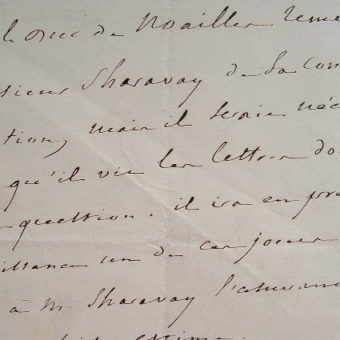 le Duc de Noailles reme
sieur Charavay de sa Com
tion, mais il serait néc
qu'il vit les lettres do
question. il ira en pro
un de ces jours
à M. Charavay l'assuranc
estime.